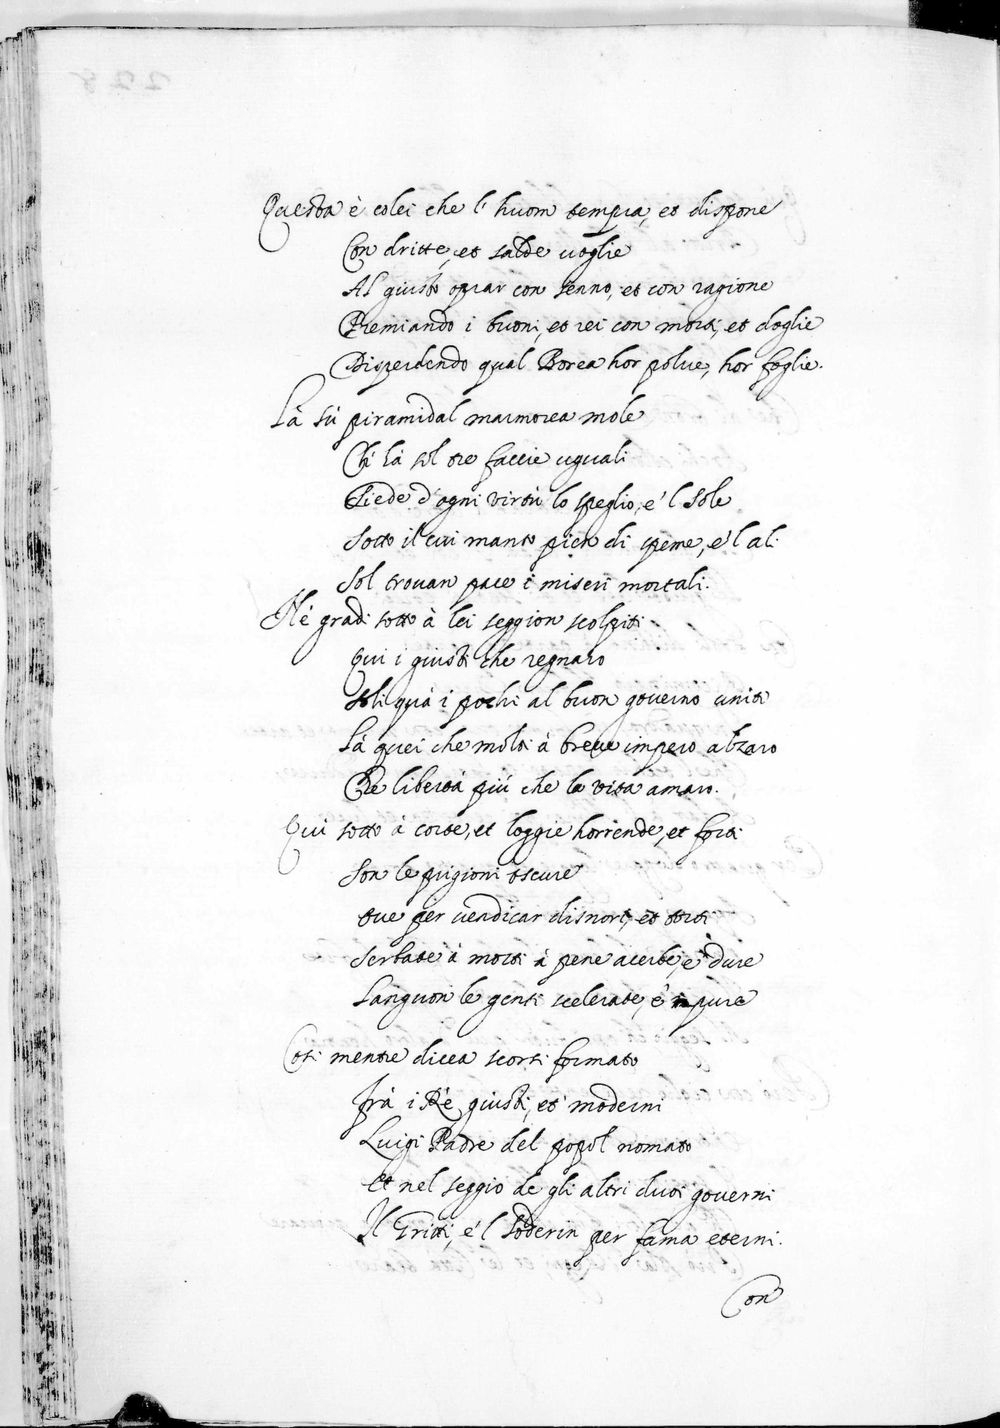 Questa è colei che l' huom tempra, et dispone
Con dritte, et salde uoglie
Al giusto oprar con senno, et con ragione
Premiando i buoni, et rei con morti, et doglie
Disperdendo qual Borea hor polue, hor foglie.
Là sù piramidal marmorea mole
Ch' hà sol tre faccie uguali
Siede d'ogni virtù lo speglio, e' l sole
Sotto il cui manto pien di speme, e'l ali
Sol trouan pace i miseri mortali.
Ne' gradi sotto à lei seggion scolpiti
Qui i giusti che regnaro
Poli quà i pochi al buon gouerno uniti
Là quei che molti à breue impero alzaro
Che libertà più che la vita amaro.
Qui sotto à corte, et loggie horrende, et forti
Son le prigioni oscure
oue per uendicar disnori, et torti
Serbate à morti à pene acerbe, e' dure
Languon le genti scelerate, e' impure
Così mentre dicea scorsi formato
Frà i Rè giusti, et moderni
Luigi Padre del popol nomato
Et nel seggio de gli altri duoi gouerni
Il Gritti, e' l Soderin per fama eterni.
Con